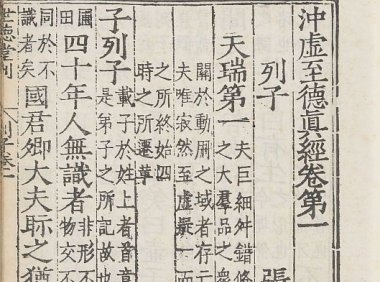 沖虛至德眞經卷第一
列子 張
天瑞第一
夫巨細舛錯脩
之大羣品之衆
關於動用之域者存亡
夫唯寂然至虛凝一而
之所終始四
時之所遷革
子列子
載子於姓上者首章
是弟子之所記故也
圃
田
四十年人無識者
非形不
物交不
同於不
識者矣
國君卿大夫眂之猶
世德堂刊 列子卷一